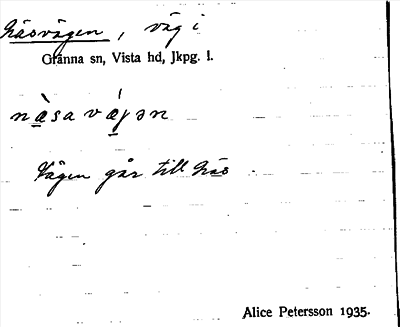 Näsvägen, väg i
Gränna sn, Vista hd, Jkpg. l.
nä̀sa vä́gən
Vägen går till Näs.
Alice Petersson 1935.